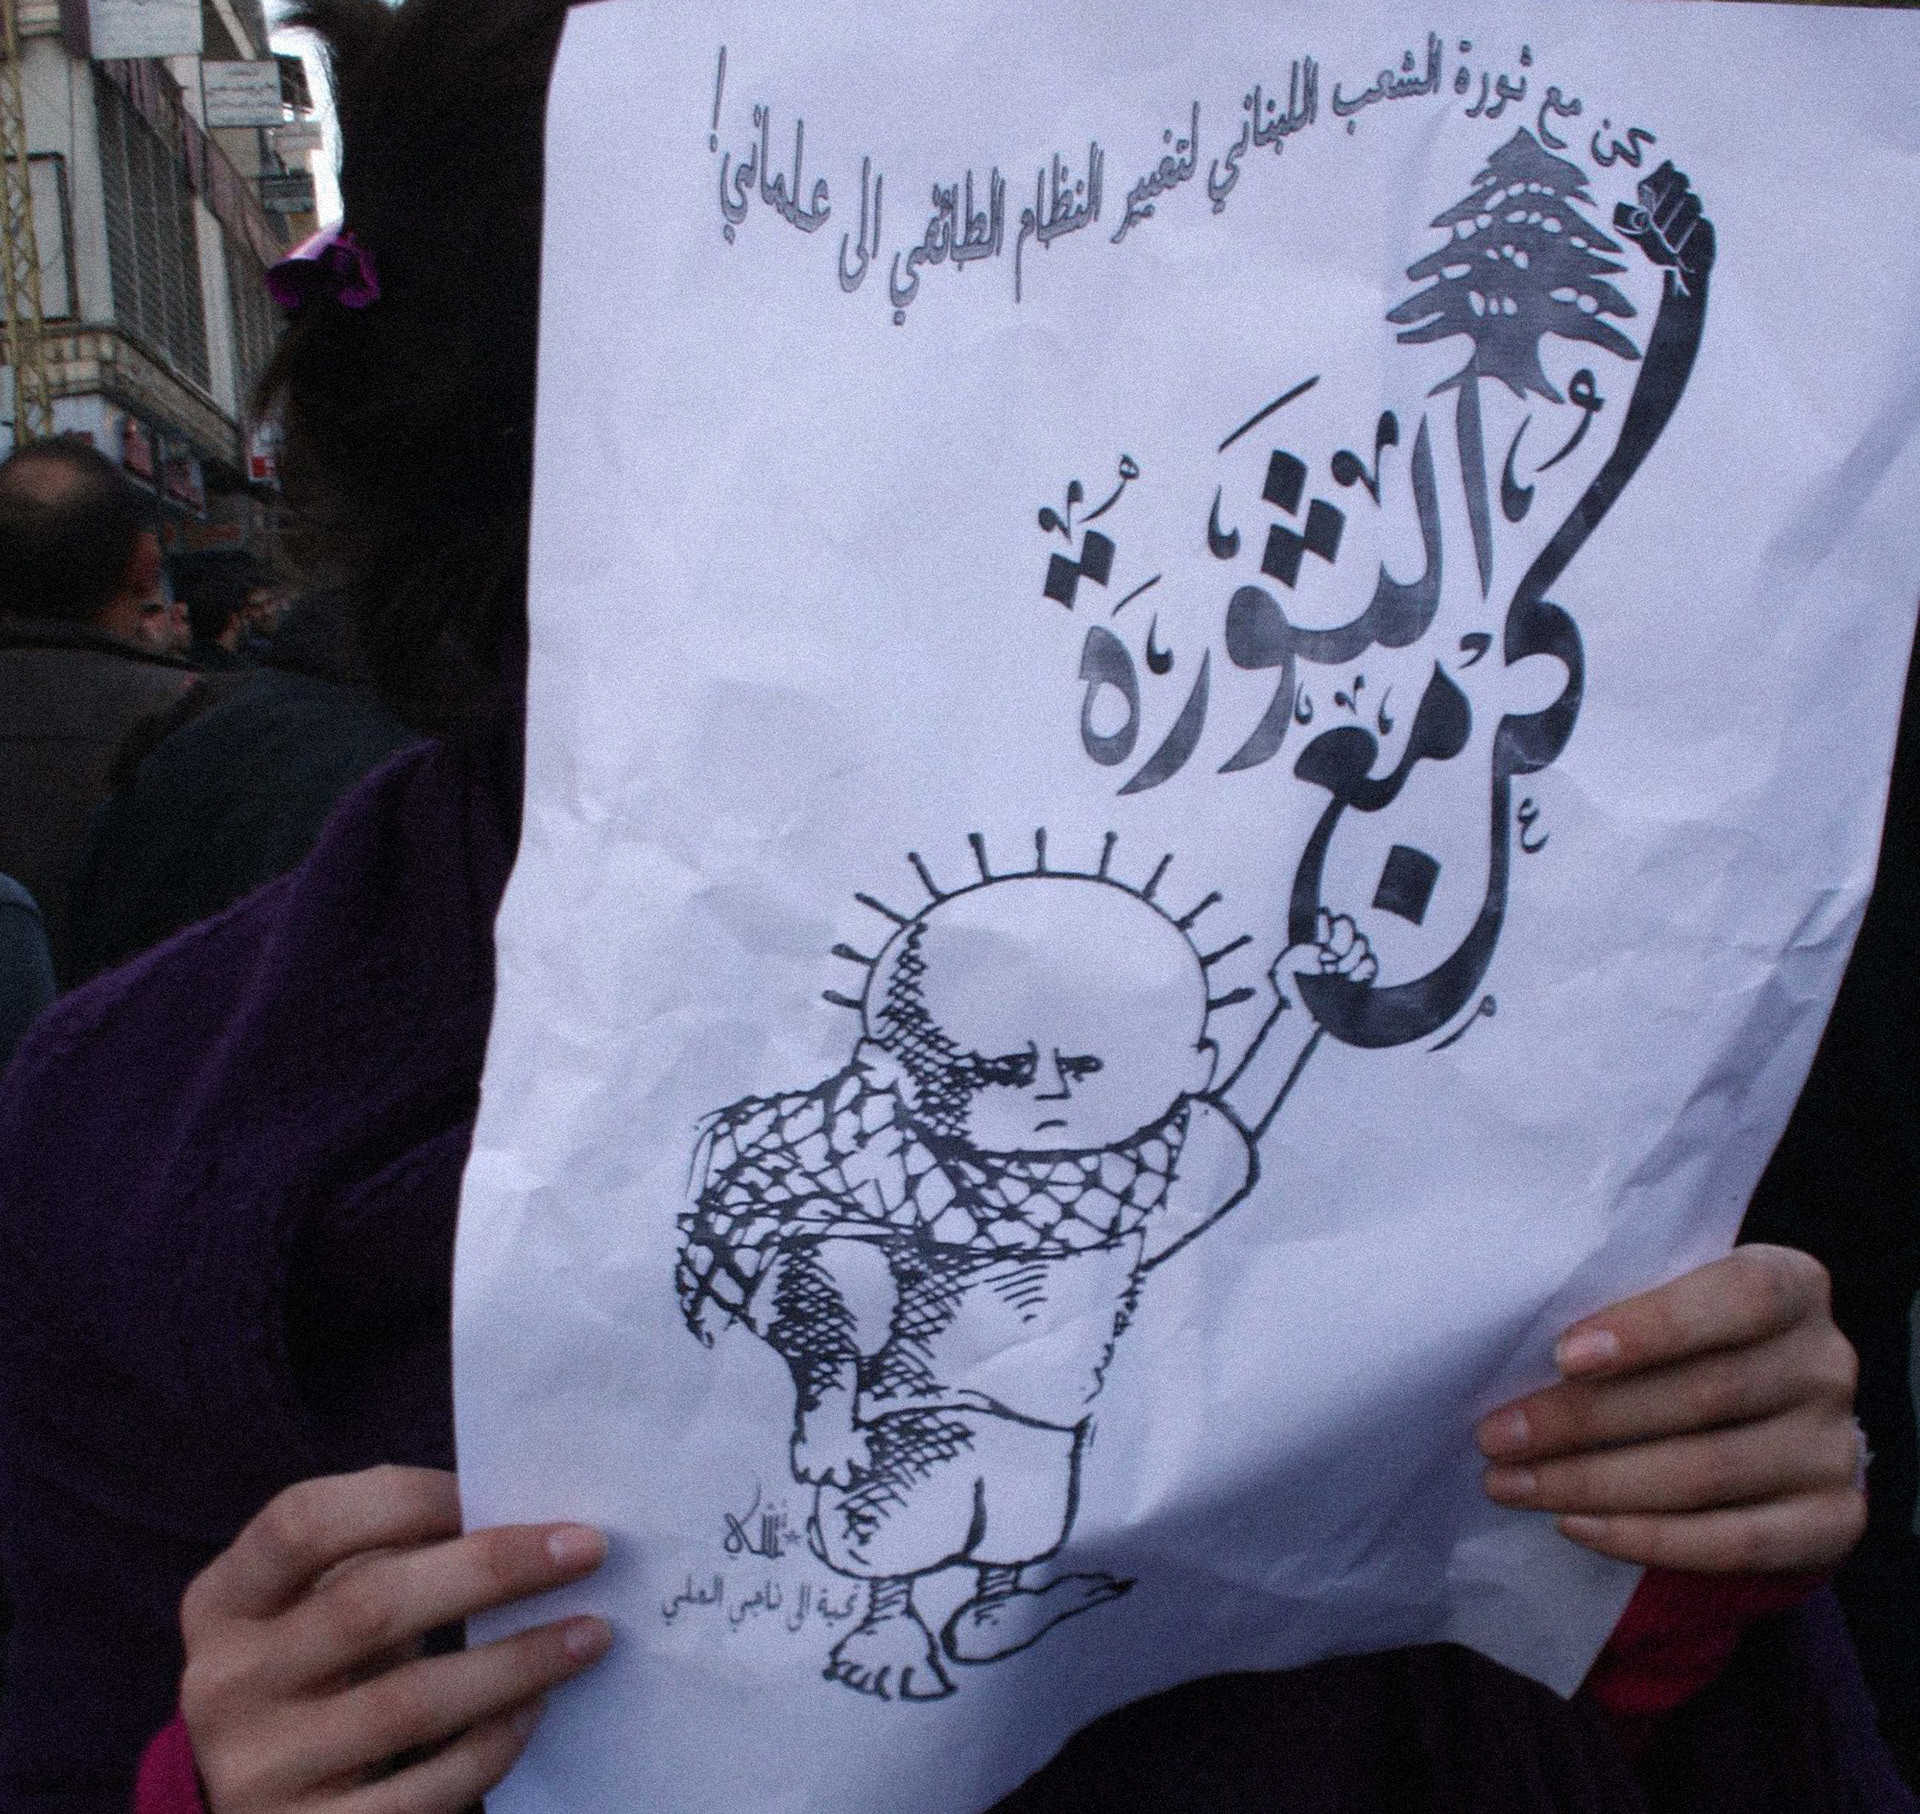 كن مع ثورة الشعب اللبناني لتغيير النظام الطائفي الى علماني!
كُن مع الثورة
تحية إلى ناجي العلي